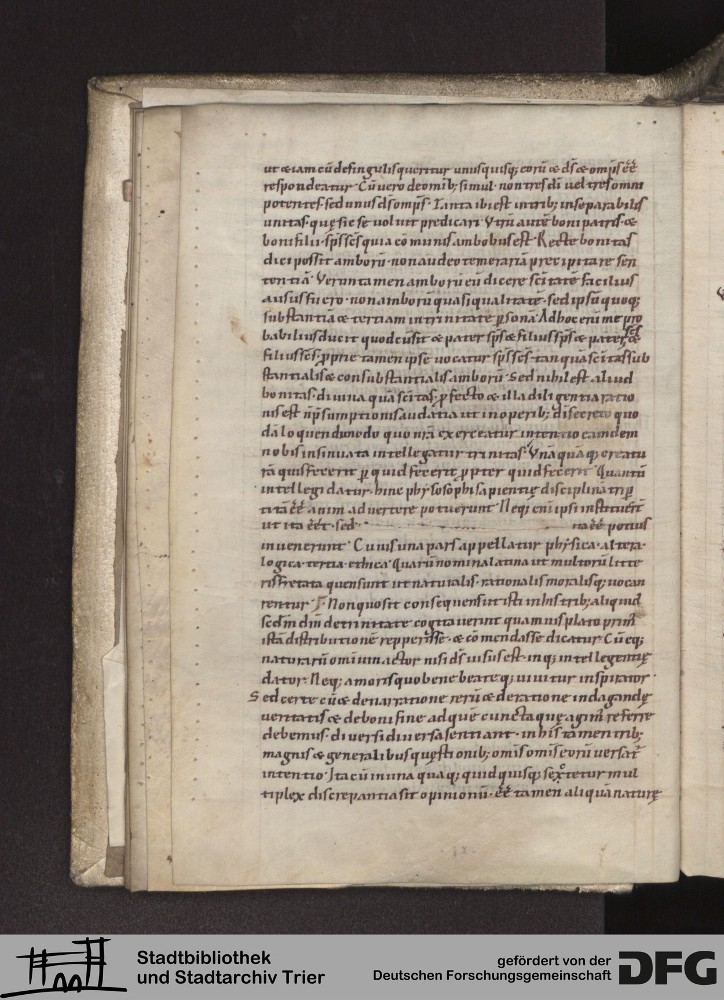 ut & iam cū de singulis queritur unusquisq; eorū & d̄s & omp̄s ēē
respondeatur · Cū vero de omīb; simul · non tres dii vel tres omni
potentes · sed unus d̄s omp̄s · Tanta ibi est in trib; inseparabilis
unitas · quę sic se voluit predicari · Utrū autē boni patris · &
boni filii · sp̄s sc̄s quia cōmunis ambobus est · Recte bonitas
dici possit amborū · non audeo temerariā precipitare sen
tentiā · Veruntamen amborū eū dicere sc̄itatē facilius
ausus fuero · non amborū quasi qualitatē · sed ipsū quoq;
substantiā & tertiam in trinitate p̄sonā · Ad hoc enī me pro
babilius ducit quod cū sit & pater sp̄s & filius sp̄s & pater sc̄s &
filius sc̄s · p̄prie tamen ipse vocatur sp̄s sc̄s · tanquā sc̄itas sub
stantialis & consubstantialis amborū · Sed nihil est aliud
bonitas · divina quā sc̄itas · p̄fecto & illa diligentia ratio
nis est n̄ p̄sumptionis audatia ut in operib; d̄i secreto quo
dā loquendi modo quo nr̄a exerceatur intentio eamdem
nobis insinuata intellegatur trinitas · Unā quāq; creatu
rā quis fecerit p̄ quid fecerit p̄pter quid fecerit · Quantū
intellegi datur · hinc phylosophi sapientię disciplinā trip̄
titā ēē animadvertere potuerunt · Neq; enī ipsi instituert̄
ut ita ēēt · sed · ita ēē potius
invenerunt · Cuius una pars appellatur physica · altera ·
logica · tertia · ethica · Quarū nomina latina iā multorū litte
ris frētata quen sunt ut naturalis · rationalis moralisq; vocan
rentur · Non quo sit consequens ut isti in his trib; aliquid
scd̄m dm̄ de trinitate cogitaverint quamvis plato prim̄
istā distributionē repperisse · & cōmendasse dicatur · Cū eq;
naturarū omium actor nisi ds̄ visus est · inq; intellegentię
dator · Neq; amoris quo bene beateq; vivitur inspirator ·
Sed certe cū & de narratione rerū & de ratione indagandę
veritatis & de boni fine ad quē cuncta quę agim̄ referre
debemus · diversi diversa sentiant · in his tamen trib;
magnis & generalibus quęstionib; om̄is om̄is eorū versat̄
intentio · Ita cū in una quaq; quid quisq; sextetur mul
tiplex discrepantia sit opinionū · ēē tamen aliquā naturę
Stadtbibliothek
und Stadtarchiv Trier
gefördert von der
Deutschen Forschungsgemeinschaft
DFG